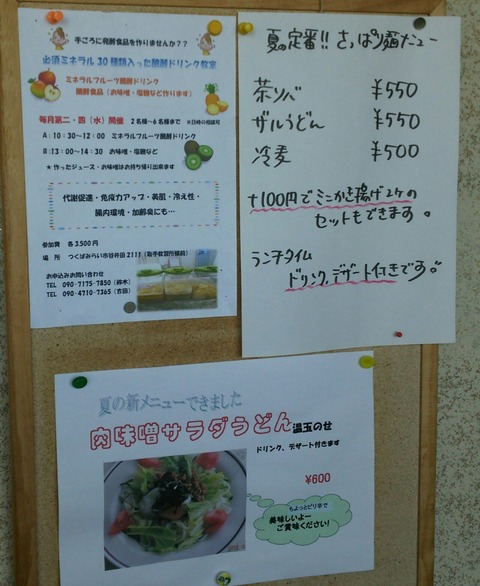 手ごろに発酵食品を作りませんか??
必須ミネラル30種類入った醗酵ドリンク教室
ミネラルフルーツ醗酵ドリンク
醗酵食品(お味噌・塩麹など作ります)
毎月第二・四(水)開催 2名様~6名様まで ※日時の相談可
A:10:30~12:00 ミネラルフルーツ醗酵ドリンク
B:13:00~14:30 お味噌・塩麹など
★ 作ったジュース・お味噌はお持ち帰り出来ます
代謝促進・免疫力アップ・美肌・冷え性・
腸内環境・加齢臭にも…
参加費 各3,500円
場所 つくばみらい市谷井田2111(取手教習所横前)
お申込みお問い合わせ
TEL 090-7175-7850(鈴木)
TEL 090-4710-7365(吉田)
夏の定番!! さっぱり麺メニュー
茶ソバ ¥550
ザルうどん ¥550
冷麦 ¥500
+100円でミニかき揚げ2ケの
セットもできます。
ランチタイム
ドリンク、デザート付きです。
夏の新メニューできました
肉味噌サラダうどん温玉のせ
ドリンク、デザート付きます
¥600
ちょっとピリ辛で
美味しいよー
ご賞味ください!